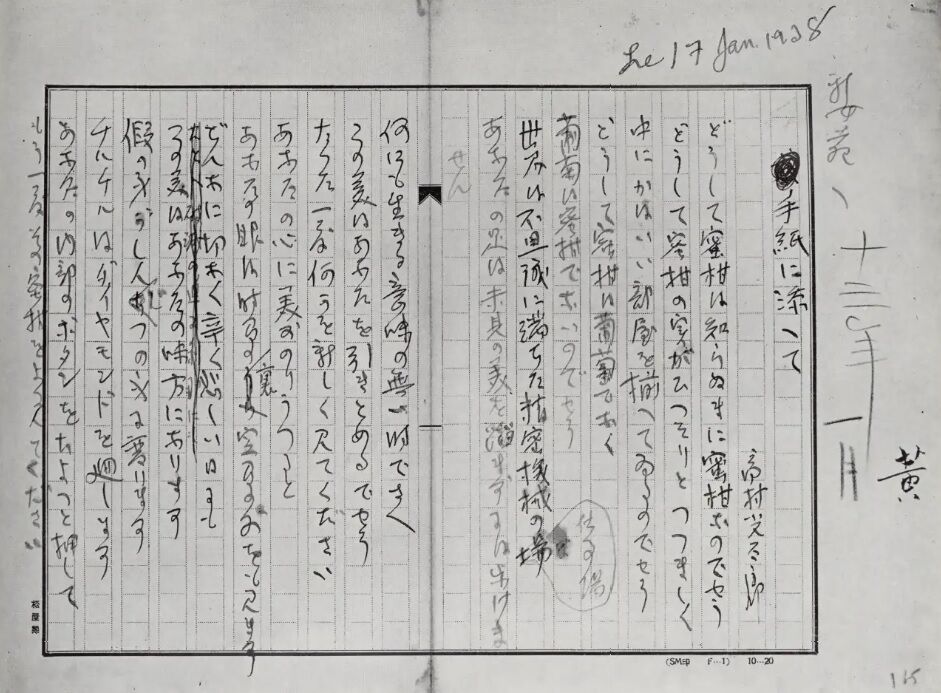 Le 17 Jan. 1938
婦人之苑 十三年一月
黄
手紙に添へて
高村光太郎
どうして蜜柑は知らぬまに蜜柑なのでせう
どうして蜜柑の実がひつそりとつつましく
中にかはいい部屋を揃へてゐるのでせう
どうして蜜柑は葡萄でなく
葡萄は蜜柑でないのでせう
世界は不思議に満ちた精密機械の場
仕事場
あなたの足は未見の美を踏まずには歩けま
せん
何にも生きる意味の無い時でさへ
この美はあなたを引きとめるでせう
たつた一度何かを新しく見てくだされ
あなたの心に美がのりうつると
あなたの眼は時間の裏空間の外をも見ます
どんなに切なく辛く悲しい日にも
この美はあなたの味方になります
仮の身がしんじつの身に変ります
チルチルはダイヤモンドを廻します
あなたの内部のボタンをちよつと押して
もう一度その蜜柑をよく見てください
榛原製
(SM印 F…1) 10…20